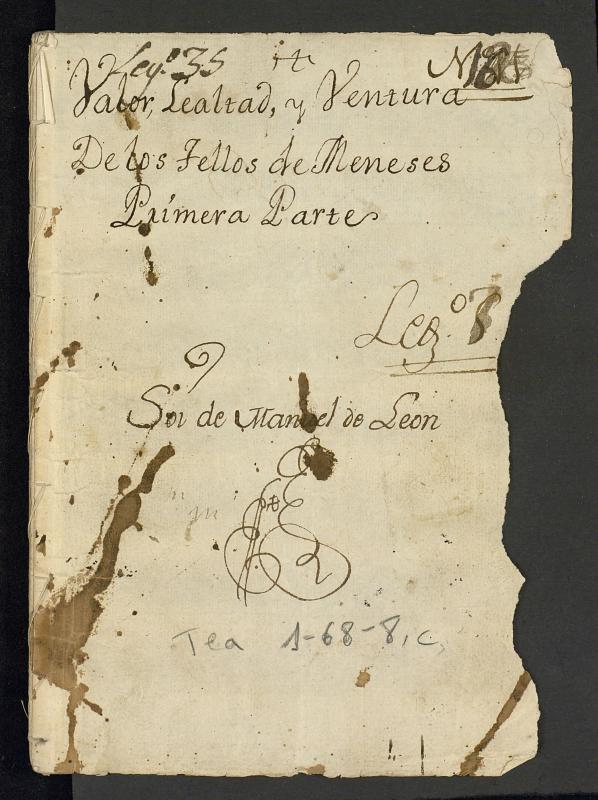 Leg.º 35
Valor, Lealtad, y Ventura
De los Tellos de Meneses
Primera Parte
Leg.º
Soi de Manuel de Leon
Tea 1-68-8, c,